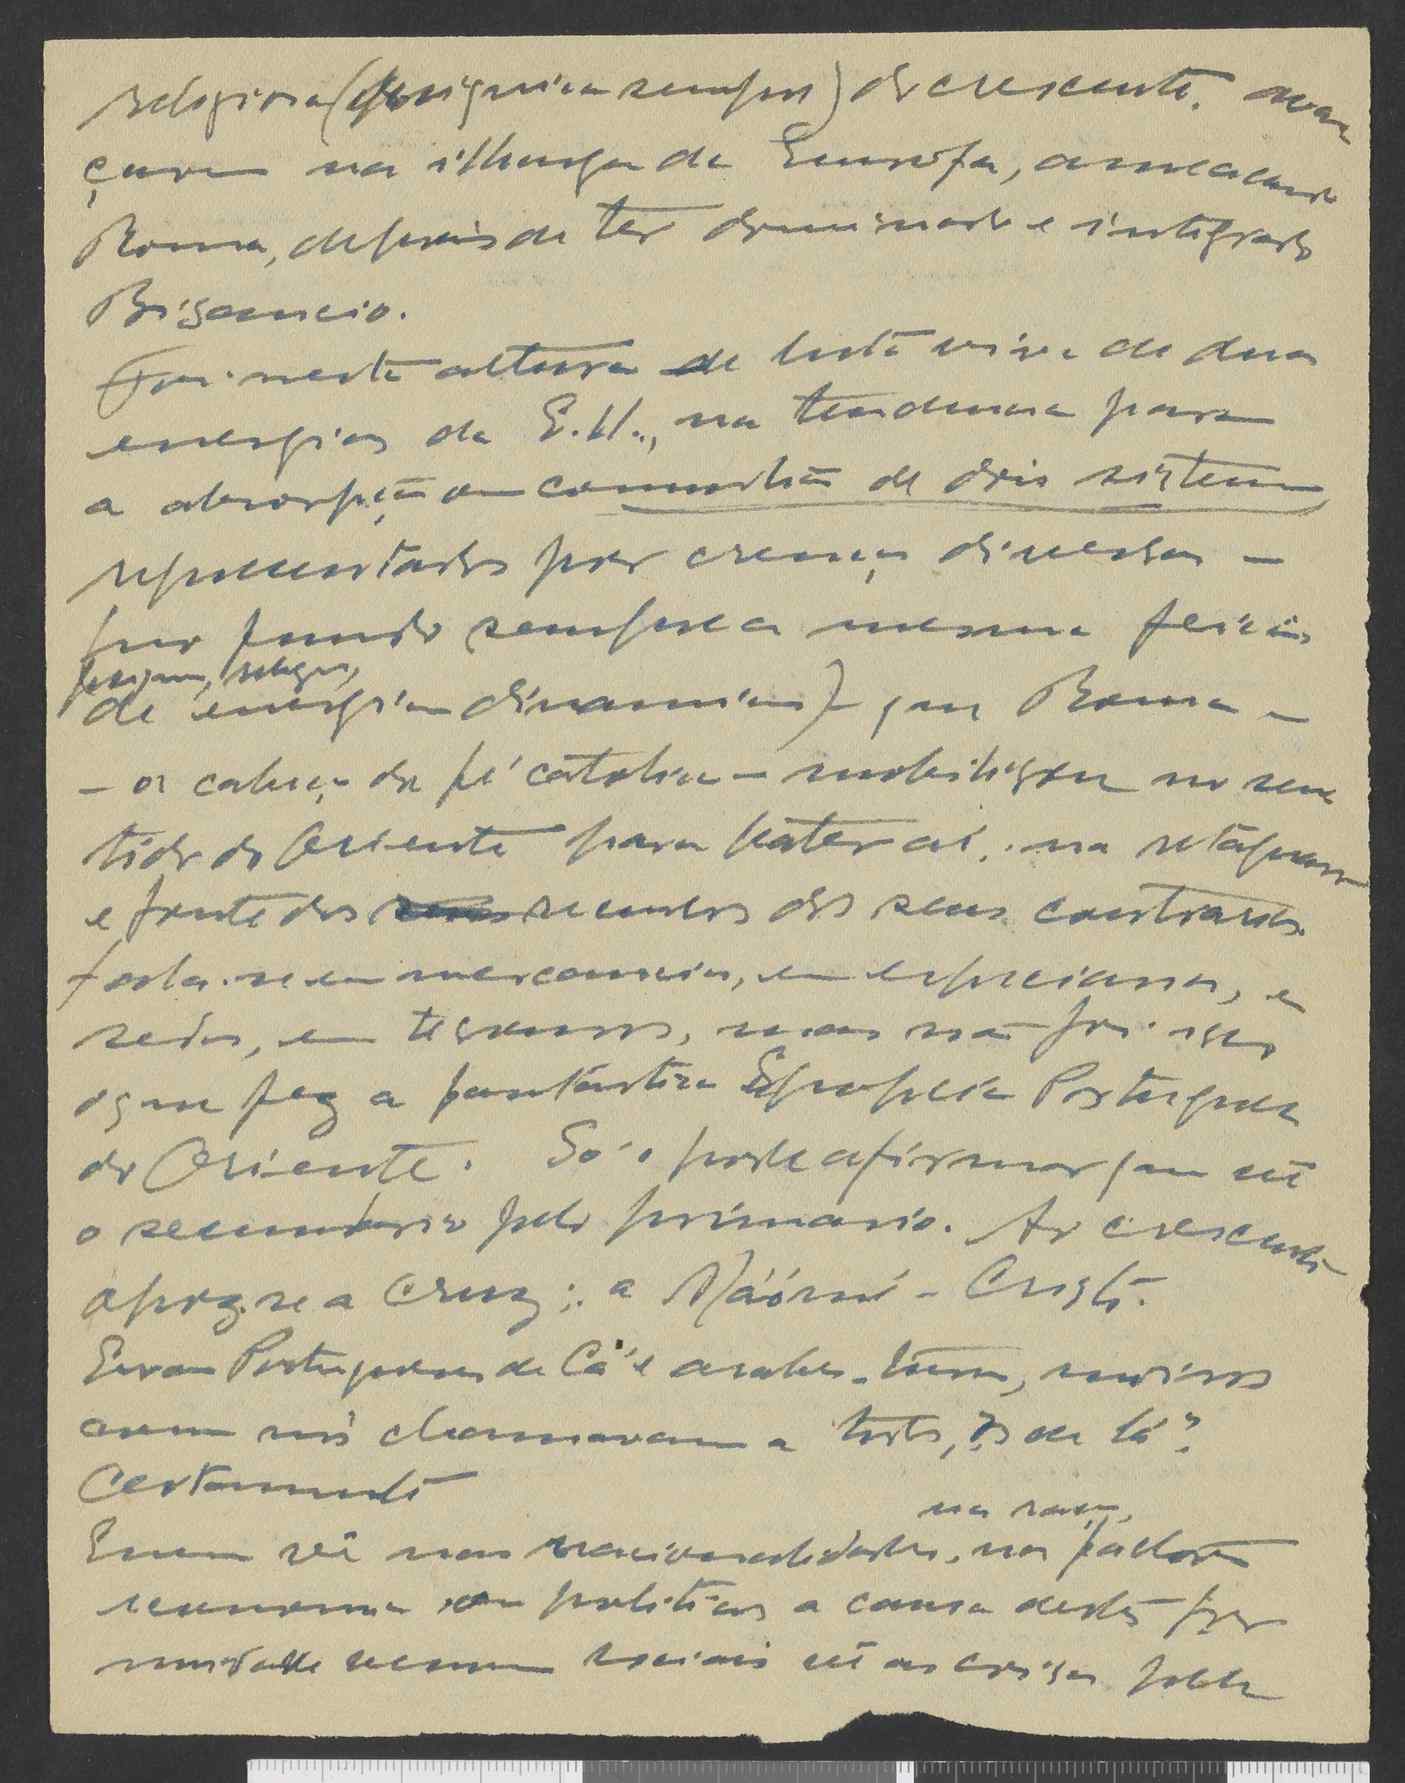 religiosa ( sempre) do crescente. avan
çara na ilharga da Europa, ameaçando
Roma, depois de ter dominado e integrado
Bisancio.
Foi nesta altura de luta viva de duas
energias da E.H., na tendencia para
a absorpção ou comunhão de dois sistemas
representados por crenças diversas -
(no fundo sempre a mesma feição
de energia dinamica) - que Roma -
- a cabeça da fé catolica - mobilisou no sen
tido do Oriente para bater ai, na retaguarda
e frente dos recursos dos seus contrarios.
Fala-se em mercancia, em especiarias, em
sedas, em tesouros, mas não foi isso
o que fez a fantástica Epopeia Portuguesa
do Oriente. Só o pode afirmar quem vê
o secundario pelo primario. Ao crescente
opoz-se a Cruz; a Maómé - Cristo.
Eram Portugueses de Cá e arabes, mouros
como nós chamavamos a todos, os de lá?
Certamente
na raça,
Quem vê nas nacionalidades, nos factores
economia ou politicos a causa destes
sociais vê as coisas pela